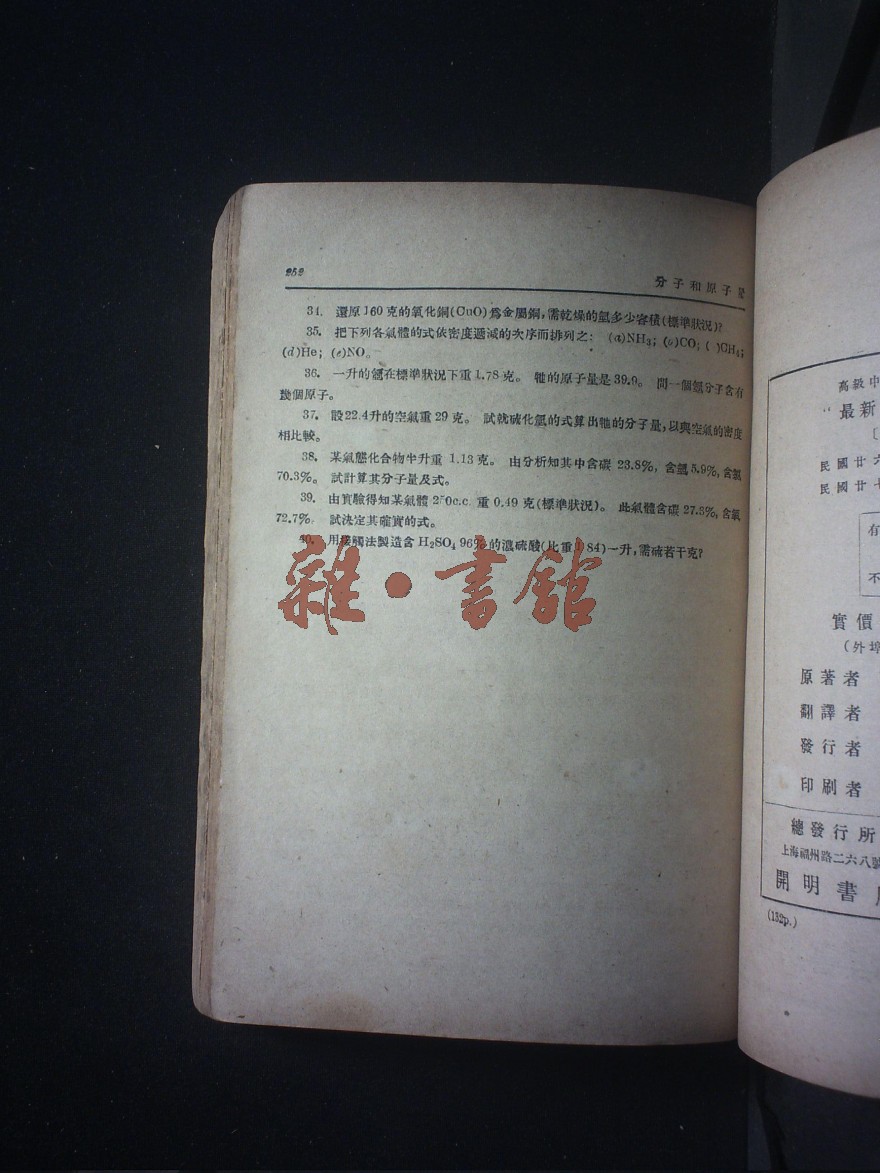 252
分子和原子量
34. 還原160克的氧化銅(CuO)爲金屬銅，需乾燥的氫多少容積(標準狀況)?
35. 把下列各氣體的式依密度遞減的次序而排列之： (a)NH₃; (b)CO; ( )CH₄;
(d)He; (e)NO。
36. 一升的氬在標準狀況下重1.78克。 牠的原子量是39.9。 問一個氬分子含有
幾個原子。
37. 設22.4升的空氣重29克。 試就硫化氫的式算出牠的分子量，以與空氣的密度
相比較。
38. 某氣態化合物半升重1.13克。 由分析知其中含碳23.8%，含氫5.9%，含氯
70.3%。 試計算其分子量及式。
39. 由實驗得知某氣體250c.c.重0.49克(標準狀況)。 此氣體含碳27.3%，含氧
72.7%。 試決定其確實的式。
40. 用接觸法製造含H₂SO₄ 96%的濃硫酸(比重1.84)一升，需硫若干克?
雜·書館
高級中
“最新
民國廿六
民國廿七
有
不
實價
(外埠
原著者
翻譯者
發行者
印刷者
總發行所
上海福州路二六八號
開明書
(132p.)